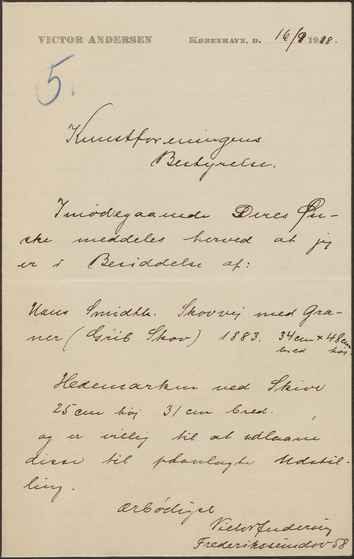 VICTOR ANDERSEN KØBENHAVN, D. 16/9 1918.
5.
Kunstforeningens
Bestyrelse.
Imødegaaende Deres Øn-
ske meddeles herved at jeg
er i Besiddelse af:
Hans Smidth. Skovvej med Gra-
ner (Grib Skov) 1883. 34 cm × 48 cm
bred høj.
Hedemarken ved Skive
25 cm høj 31 cm bred.
og er villig til at udlaane
disse til planlagte Udstil-
ling.
Ærbødigst
Victor Andersen
58